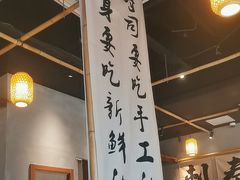 司要吃手工
身要吃新鮮